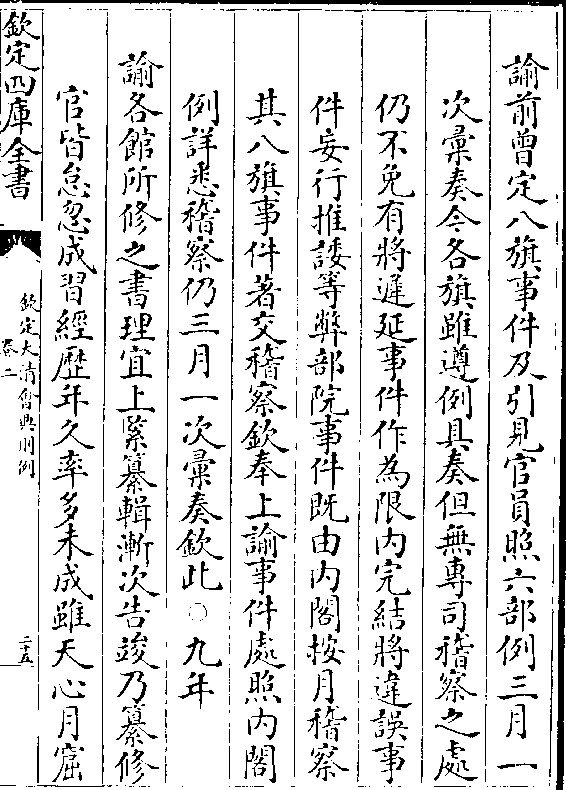 諭前曾定八旗事件及引見官員照六部例三月一
次彙奏今各旗雖遵例具奏但無專司稽察之處
仍不免有將遲延事件作為限内完結將違誤事
件妄行推諉等弊部院事件既由内閣按月稽察
其八旗事件著交稽察欽奉上諭事件處照内閣
例詳悉稽察仍三月一次彙奏欽此○九年
諭各館所修之書理宜上緊纂輯漸次告竣乃纂修
官皆怠忽成習經歷年久率多未成雖天心月窟
欽定四庫全書
欽定大清會典則例
卷二
二十五